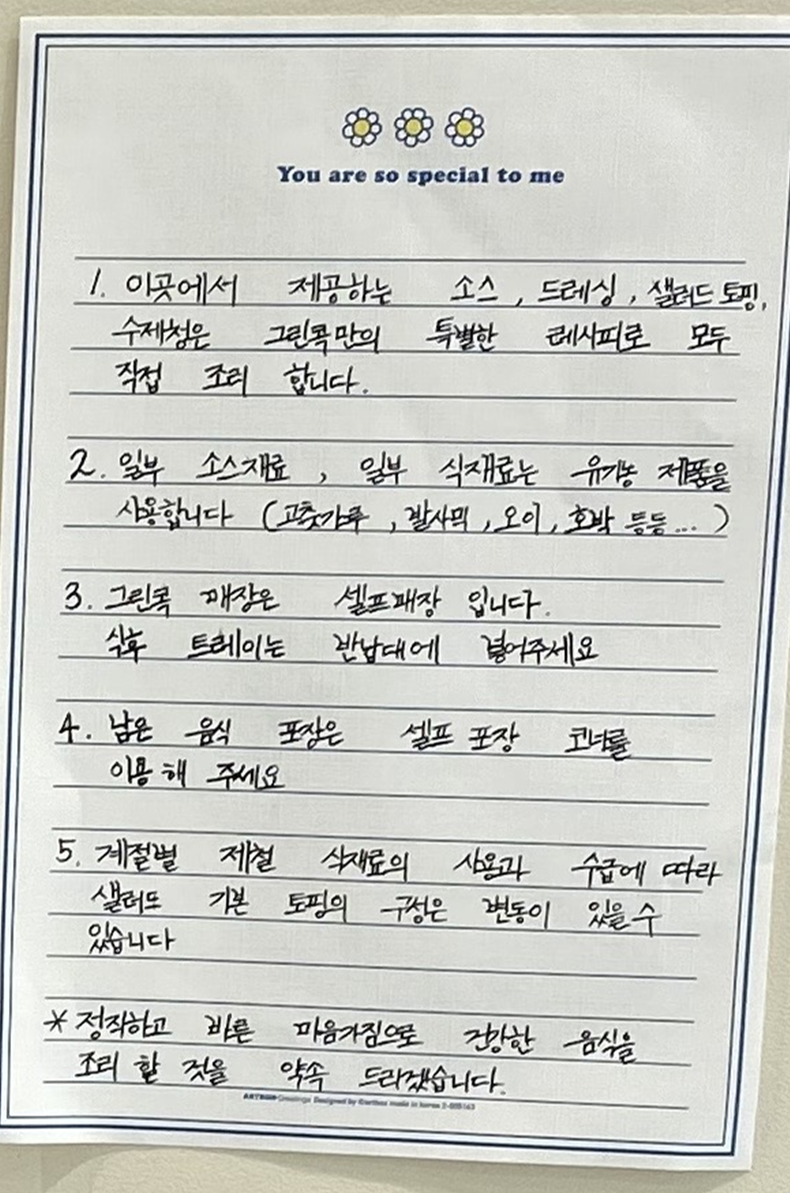 You are so special to me
1. 이곳에서 제공하는 소스, 드레싱, 샐러드 토핑,
수제청은 그린콕만의 특별한 레시피로 모두
직접 조리 합니다.
2. 일부 소스재료, 일부 식재료는 유기농 제품을
사용합니다 (고춧가루, 발사믹, 오이, 호박 등등...)
3. 그린콕 매장은 셀프매장 입니다.
식후 트레이는 반납대에 넣어주세요
4. 남은 음식 포장은 셀프 포장 코너를
이용 해 주세요
5. 계절별 제철 식재료의 사용과 수급에 따라
샐러드 기본 토핑의 구성은 변동이 있을 수
있습니다
* 정직하고 바른 마음가짐으로 건강한 음식을
조리 할 것을 약속 드리겠습니다.